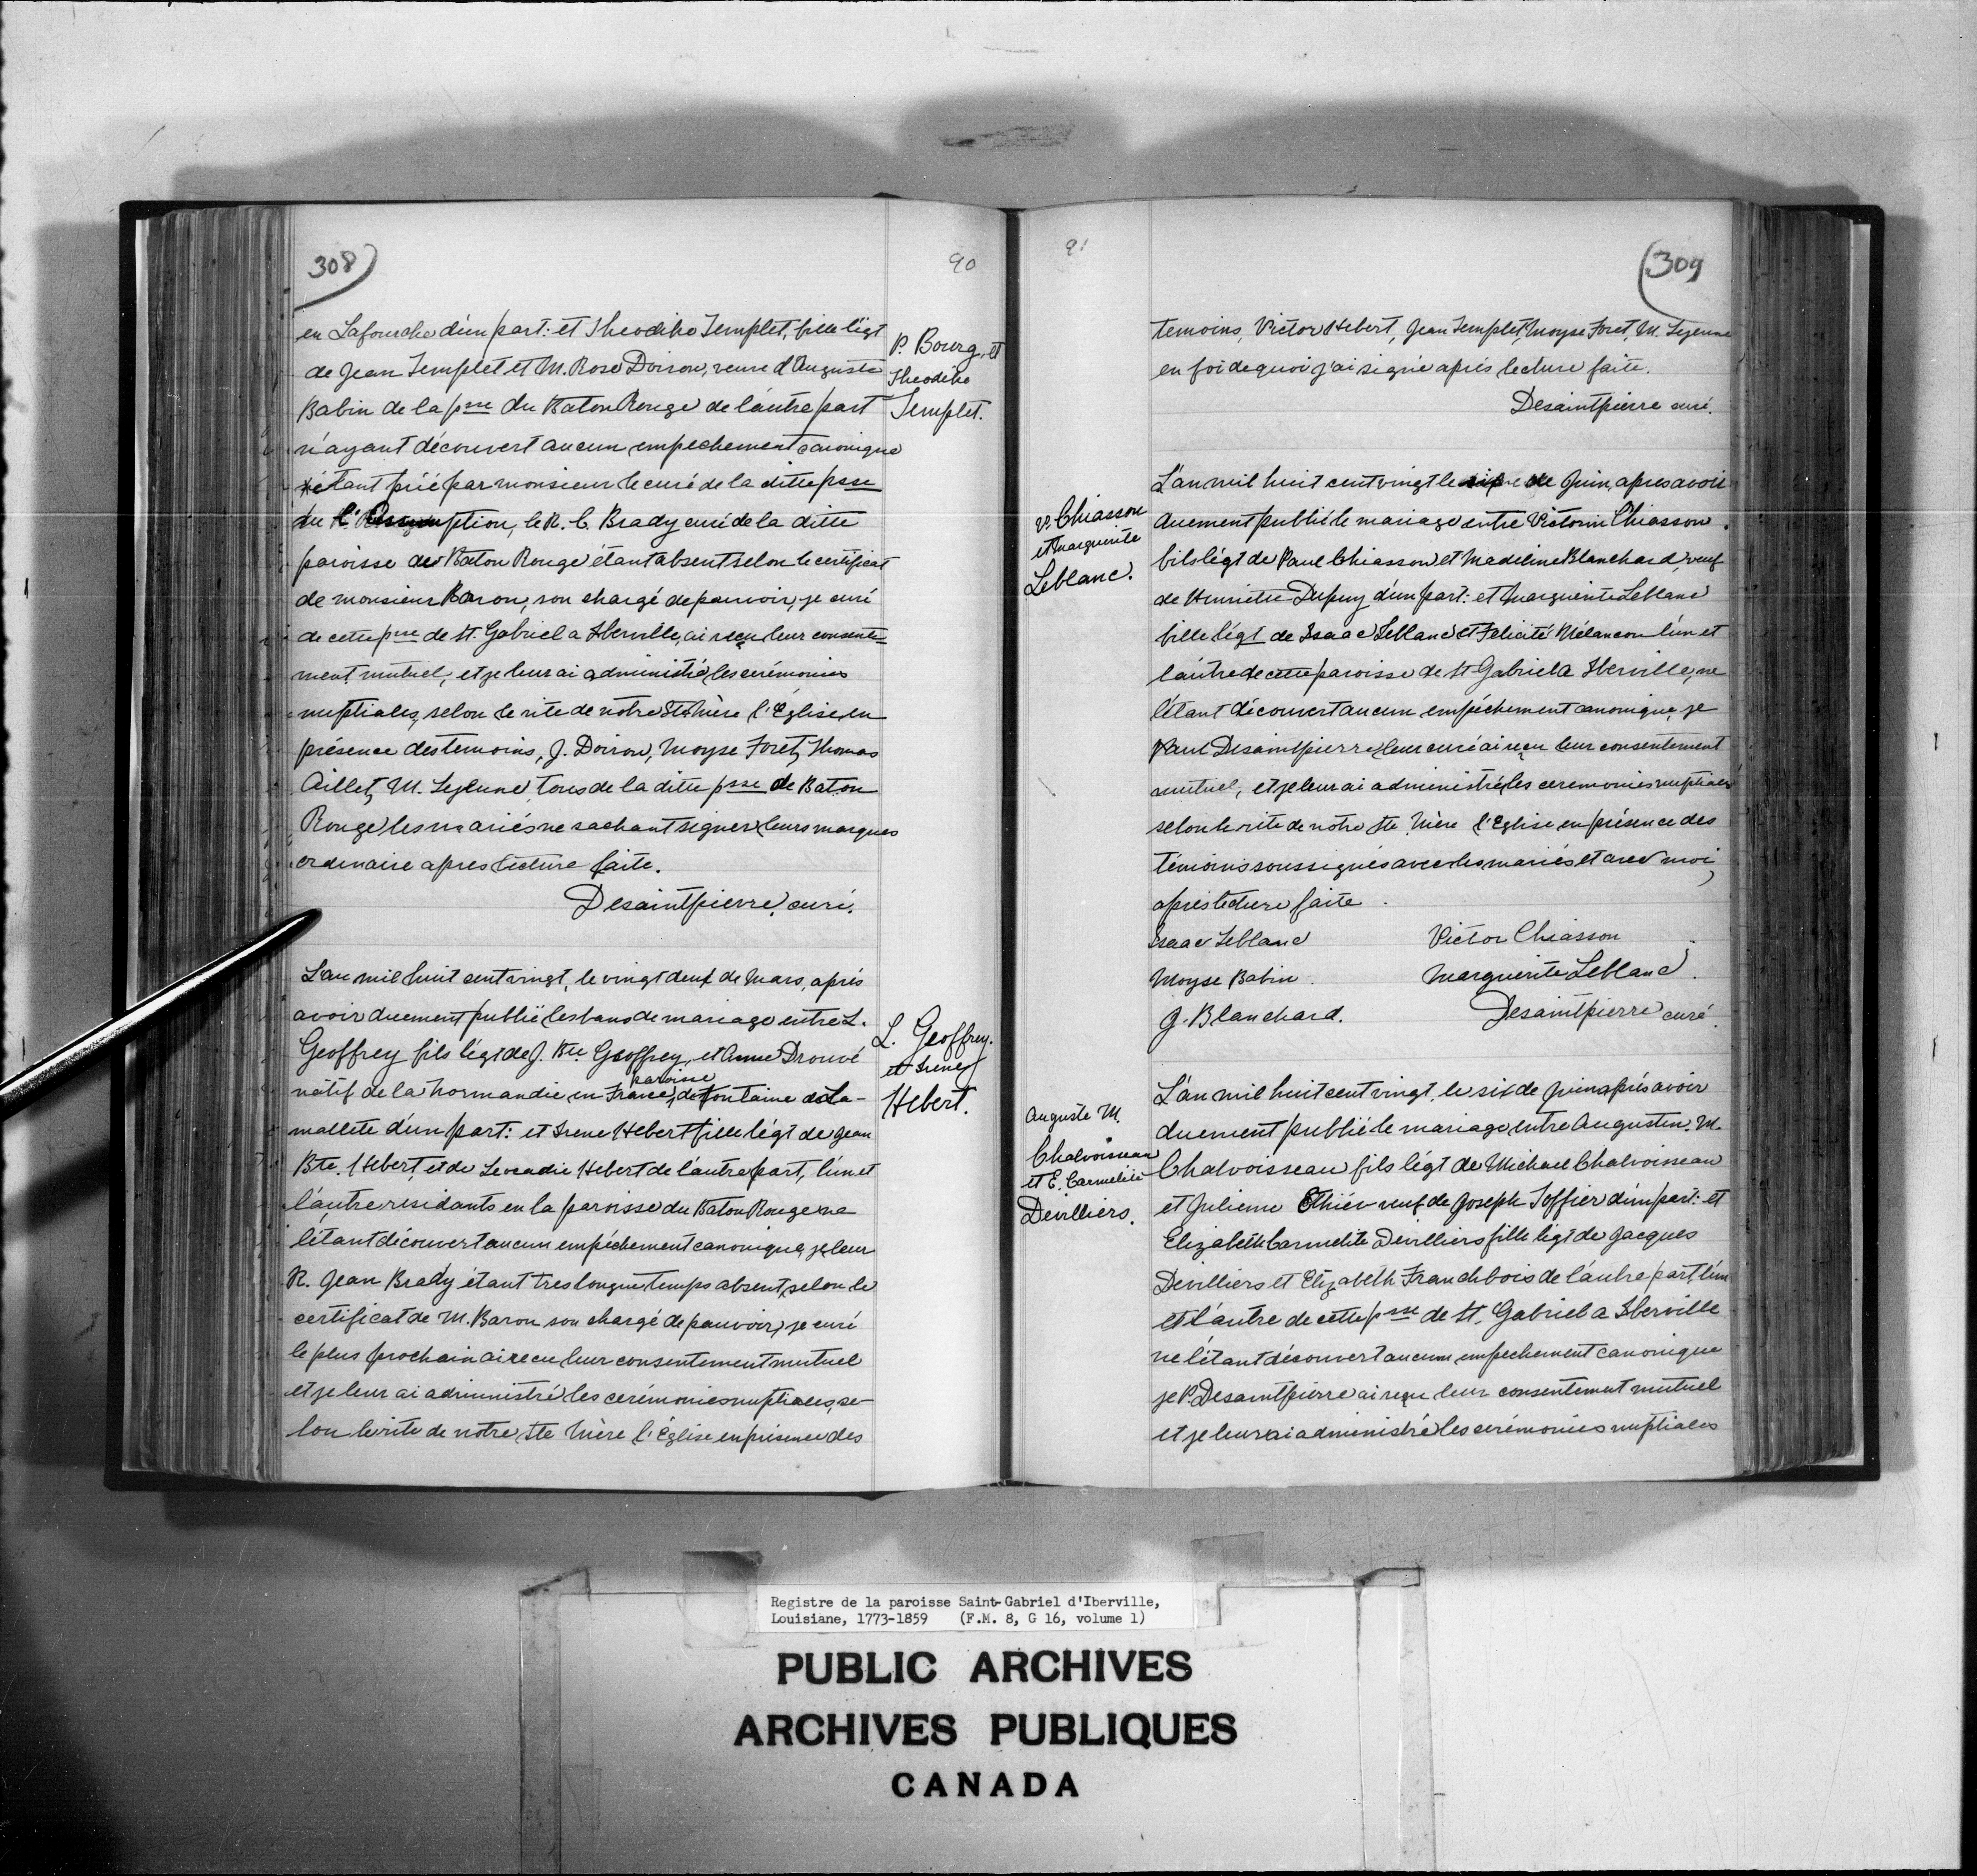 308
90
en Lafourche d'un part: et Theodike Templet, fille légt
de Jean Templet et M. Rose Doiron, veuve d'Auguste
Babin de la psse du Baton Rouge de l'autre part
n'ayant découvert aucun empechement canonique
étant prié par monsieur le curé de la ditte psse
de l'Assumption, le R. C. Brady curé de la ditte
paroisse de Baton Rouge étant absent selon le certificat
de monsieur Baron, son chargé de pouvoir, je curé
de cette psse de St. Gabriel a Iberville, ai reçu leur consente
ment mutuel, et je leur ai administré les cerémonies
nuptiales, selon le rite de notre Ste Mère l'Eglise en
présence des temoins, J. Doiron, Moyse Foret, Thomas
Aillet, M. Lejeune, tous de la ditte psse de Baton
Rouge les mariés ne sachant signer leurs marques
ordinaire apres lecture faite.
Desaintpierre, curé.
P. Bourg, et
Theodike
Templet.
L'an mil huit cent vingt, le vingt deux de Mars, après
avoir duement publié les bans de mariage entre L.
Geoffrey fils légt de J. Bte Geoffrey, et Anne Drouvé
paroisse
natif de la Normandie en France, de Fontaine de La-
mallete d'un part: et Irene Hebert fille légt de Jean
Bte. Hebert, et de Leocadie Hebert de l'autre part, l'un et
l'autre residants en la paroisse du Baton Rouge ne
l'étant découvert aucun empéchement canonique, je leur
R. Jean Brady étant tres longue temps absent, selon le
certificat de M. Baron son chargé de pouvoir, je curé
le plus prochain ai recu leur consentement mutuel
et je leur ai administré les cerémonies nuptiales, se-
lon le rite de notre Ste Mère l'Église en présence des
L. Geoffrey.
et Irene
Hebert.
91
309
temoins, Victor Hebert, Jean Templet, Moyse Foret, M. Lejeune
en foi de quoi j'ai signé après lecture faite.
Desaintpierre curé.
V. Chiasson
et Marguerite
Leblanc.
L'an mil huit cent vingt le de Juin, apres avoir
duement publié le mariage entre Victorin Chiasson
fils légt de Paul Chiasson et Madeleine Blanchard, veuf
de Henriette Dupuy d'un part: et Marguerite Leblanc
fille légt de Isaac Leblanc et Felicité Mélancon l'un et
l'autre de cette paroisse de St Gabriel a Iberville, ne
l'étant découvert aucun empéchement canonique, je
Paul Desaintpierre leur curé ai reçu leur consentement
mutuel, et je leur ai administré les ceremonies nuptiales
selon le rite de notre Ste Mère l'Eglise en présence des
témoins soussignés avec les mariés et avec moi,
après lecture faite.
Isaac Leblanc Victor Chiasson
Moyse Babin. Marguerite Leblanc.
J. Blanchard. Desaintpierre curé.
Auguste M.
Chalvoisseau
et E. Carmélite
Devilliers.
L'an mil huit cent vingt, le six de Juin après avoir
duement publié le mariage entre Augustin M.
Chalvoisseau fils légt de Michael Chalvoisseau
et Julienne veuf de Joseph Joffier d'un part: et
Elizabeth Carmelite Devilliers fille légt de Jacques
Devilliers et Elizabeth Franchbois de l'autre part, l'un
et l'autre de cette psse de St. Gabriel a Iberville
ne l'étant découvert aucun empechement canonique
je P. Desaintpierre ai reçu leur consentement mutuel
et je leur ai administré les cerémonies nuptiales
Registre de la paroisse Saint-Gabriel d'Iberville,
Louisiane, 1773-1859 (F.M. 8, G 16, volume 1)
PUBLIC ARCHIVES
ARCHIVES PUBLIQUES
CANADA